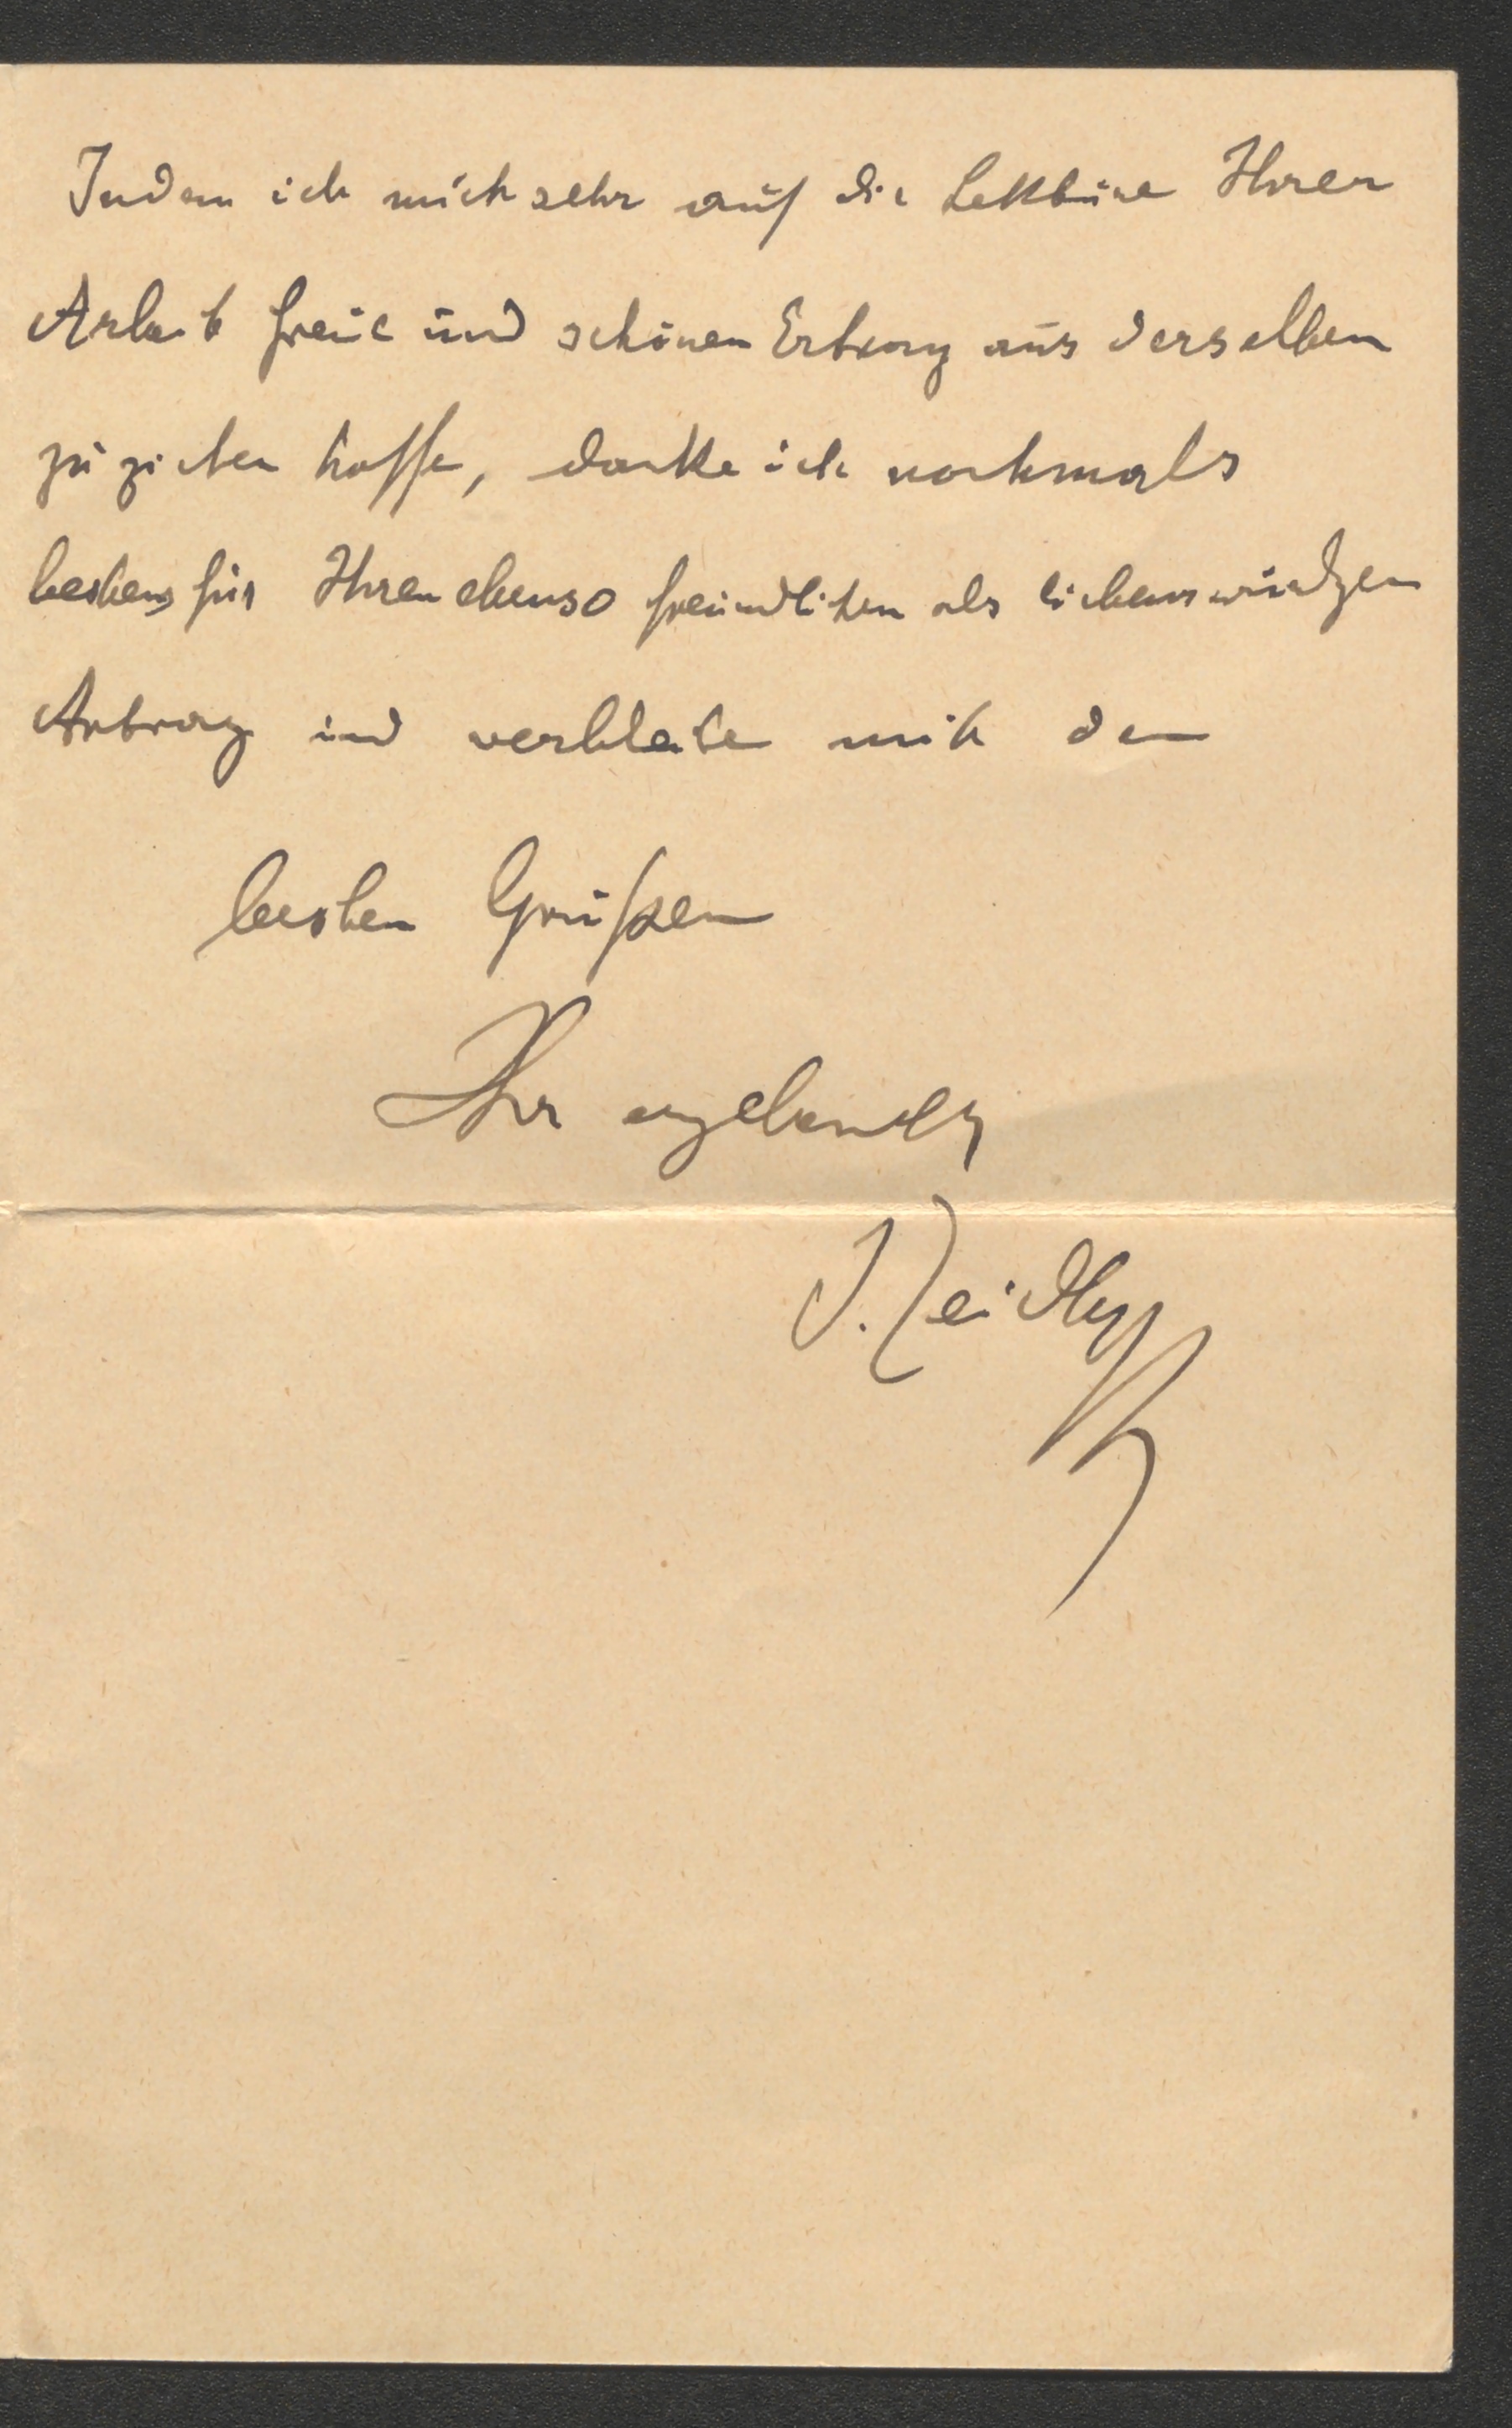 Indem ich mich sehr auf die Lektüre Ihrer
Arbeit freue und schönen Ertrag aus derselben
zu ziehen hoffe, danke ich nochmals
bestens für Ihren ebenso freundlichen als liebenswürdigen
Antrag und verbleibe mit den
besten Grüßen
Ihr ergebenster
J. Zeidler